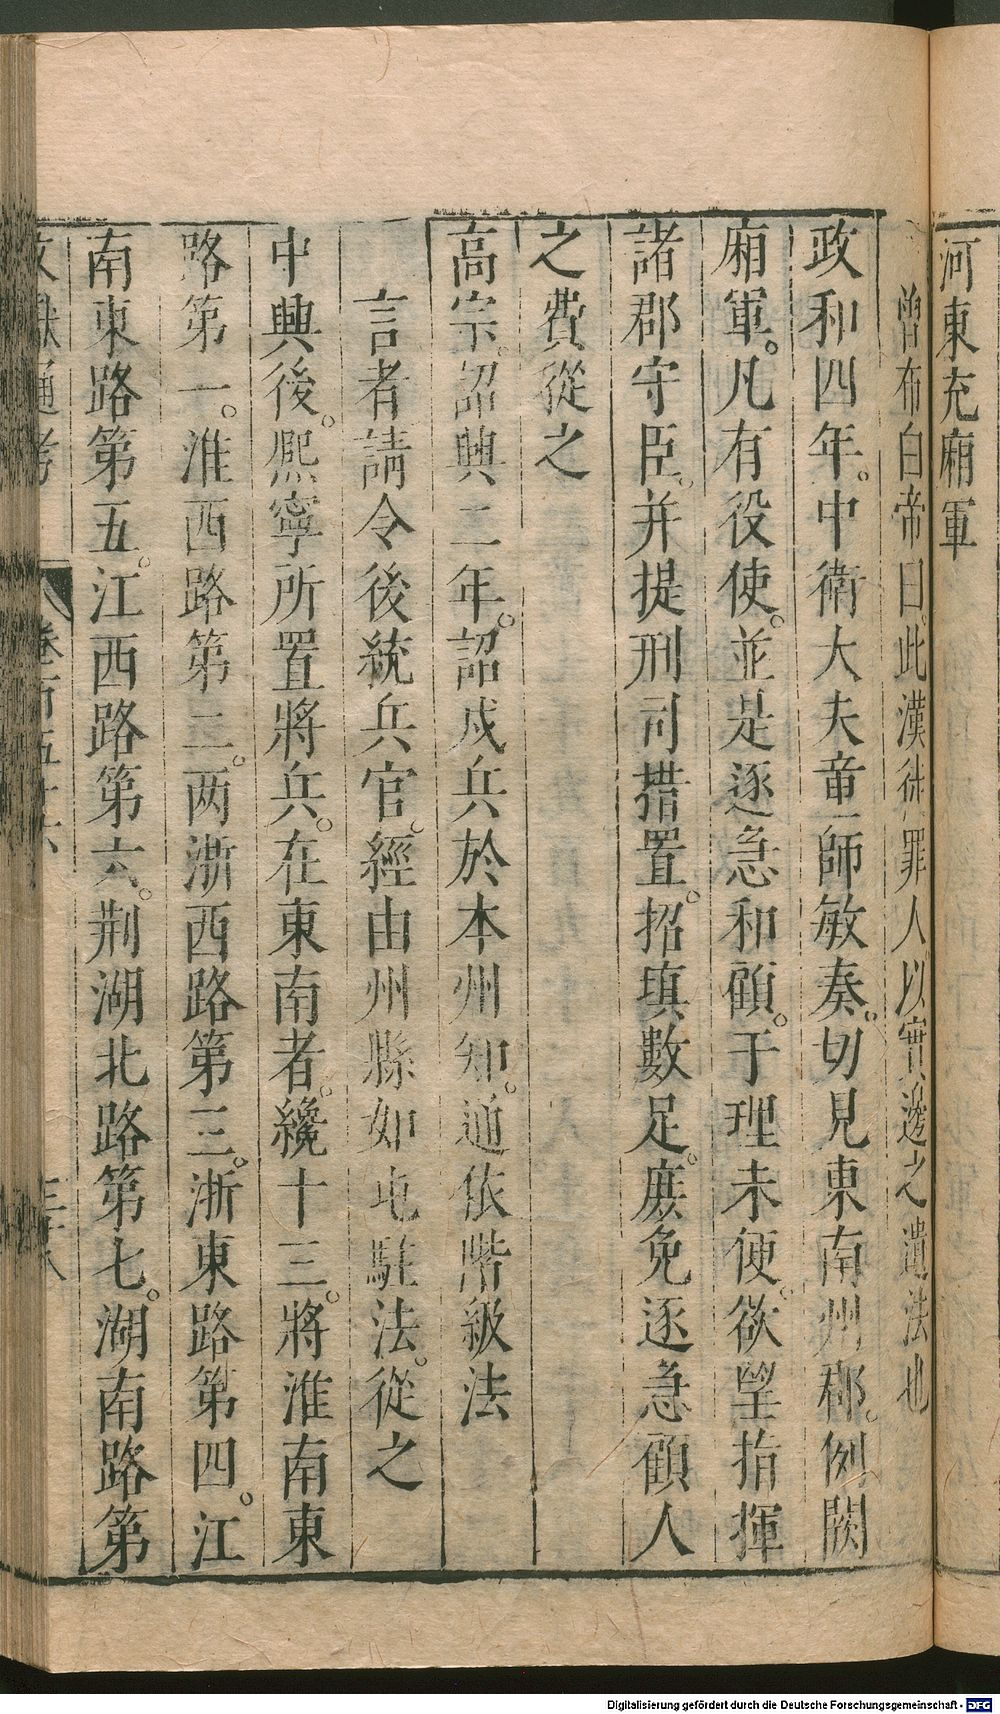 河東充廂軍
曾布白帝曰此漢徙罪人以實邊之遺法也
政和四年。中衛大夫童師敏奏。切見東南州郡。例闕
廂軍。凡有役使。並是逐急和顧。于理未便。欲望指揮
諸郡守臣。并提刑司措置。招填數足。庶免逐急顧人
之費從之
高宗。詔興二年。詔戍兵於本州知。通依階級法
言者請令後統兵官。經由州縣如屯駐法。從之
中興後。熙寧所置將兵。在東南者。纔十三。將淮南東
路第一。淮西路第二。两浙西路第三。浙東路第四。江
南東路第五。江西路第六。荆湖北路第七。湖南路第
文獻通考 卷百五十六 三十八
Digitalisierung gefördert durch die Deutsche Forschungsgemeinschaft - DFG